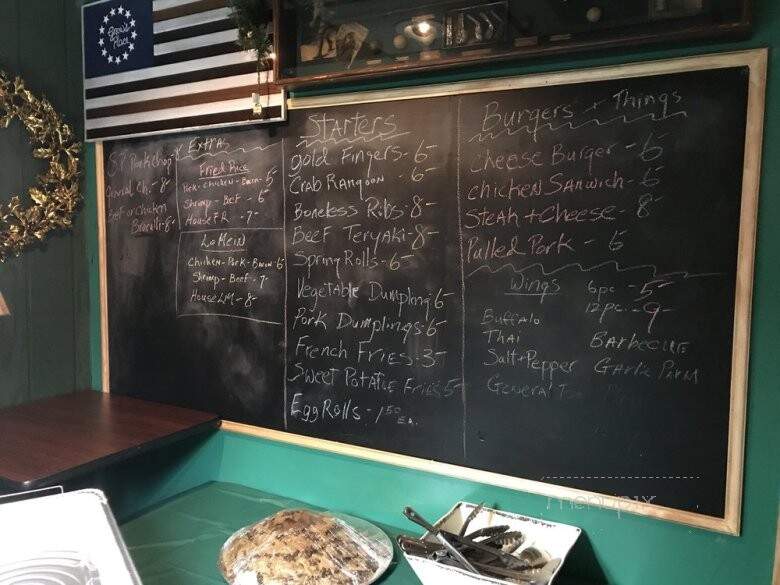 Place
S+P Pork chop
General Ch. - 8-
Beef or Chicken
Broccoli - 8-
Extras
Fried Rice
Pork - Chicken - Bacon - 5
Shrimp - Beef - 6-
House F.R. - 7-
Lo Mein
Chicken - Pork - Bacon - 6
Shrimp - Beef - 7-
House LM - 8-
Starters
Gold Fingers - 6-
Crab Rangoon - 6-
Boneless Ribs - 8-
Beef Teryaki - 8-
Spring Rolls - 6-
Vegetable Dumpling 6-
Pork Dumplings - 6-
French Fries - 3.5-
Sweet Potatoe Fries 5-
Egg Rolls - 1.50 ea.
Burgers + Things
Cheese Burger - 6-
Chicken Sandwich - 6-
Steak + Cheese - 8-
Pulled Pork - 6
Wings 6pc - 5-
12pc. - 9-
Buffalo
Thai Barbecue
Salt + Pepper Garlic Parm
General
menupix